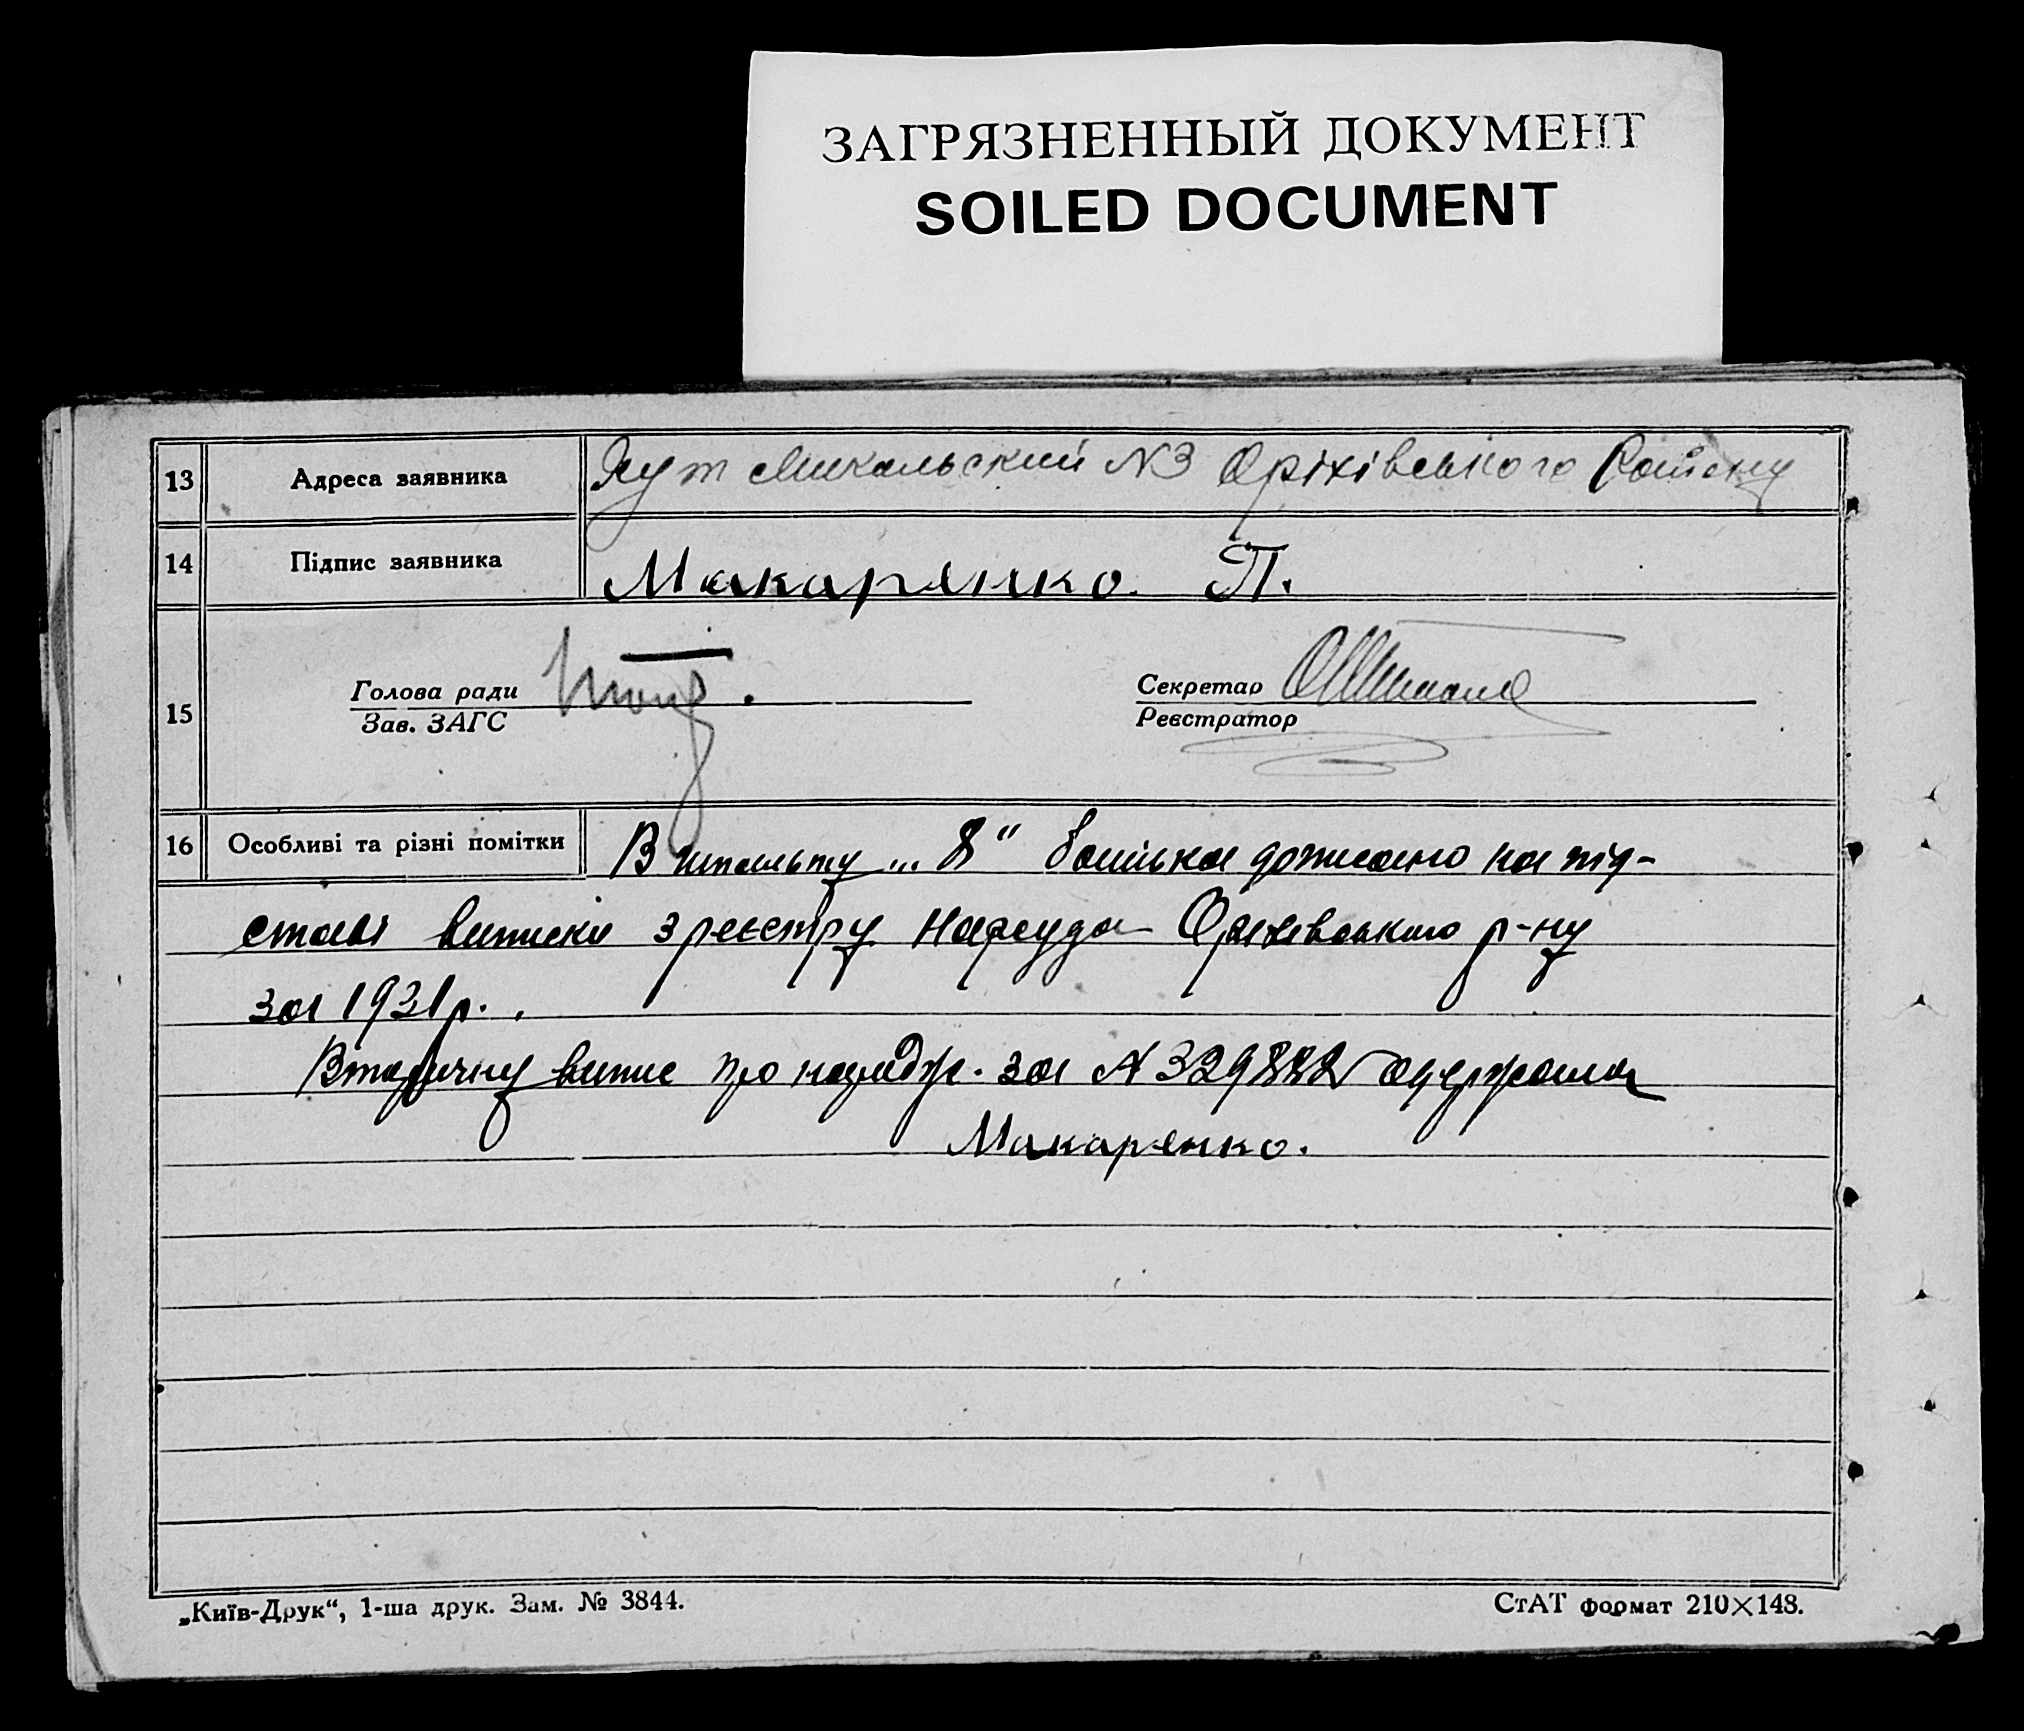 ЗАГРЯЗНЕННЫЙ ДОКУМЕНТ
SOILED DOCUMENT
13 Адреса заявника Хут Микальский №3 Оріхівського Району
14 Підпис заявника Макарянко П.
15 Голова ради
Зав. ЗАГС
Секретар
Реєстратор
16 Особливі та різні помітки В шпальту „8“ батька дописано на під-
ставі виписки з реєстру Нарсуда Оріхівського р-ну
за 1931 р.
Вторичну випис про народж. за № 329882 одержала
Макаренко.
„Київ-Друк“, 1-ша друк. Зам. № 3844.
СтАТ формат 210×148.